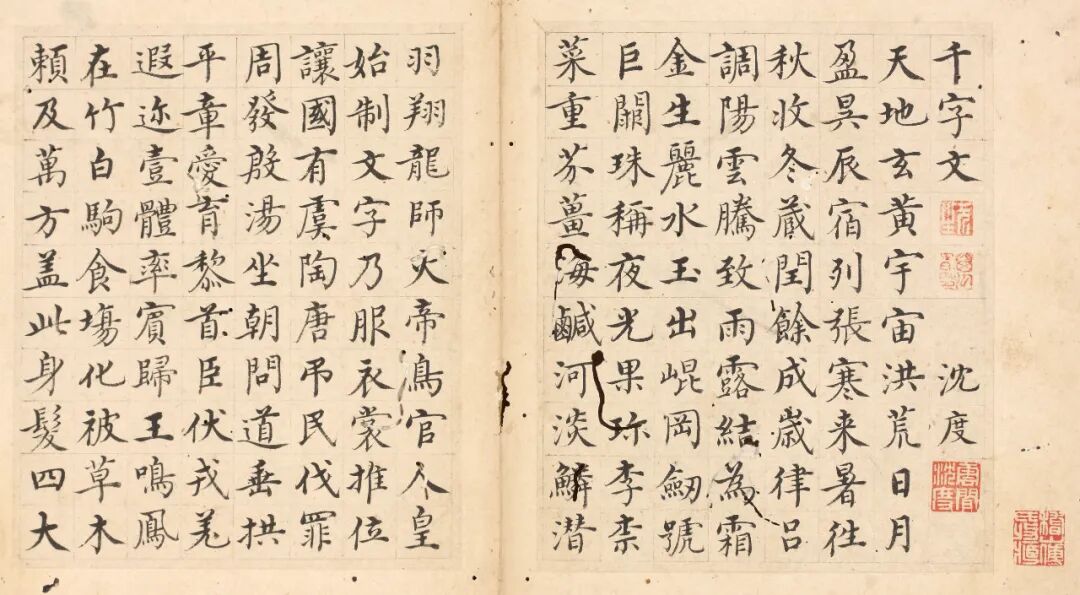 千字文 沈度
天地玄黃宇宙洪荒日月
盈昃辰宿列張寒来暑往
秋收冬蔵閏餘成歲律呂
調陽雲騰致雨露結為霜
金生麗水玉出崐岡劒號
巨闕珠稱夜光果珎李柰
菜重芥薑海鹹河淡鱗潜
羽翔龍師火帝鳥官人皇
始制文字乃服衣裳推位
讓國有虞陶唐吊民伐罪
周發殷湯坐朝問道垂拱
平章愛育黎首臣伏戎羌
遐迩壹體率賓歸王鳴鳳
在竹白駒食場化被草木
頼及萬方盖此身髮四大